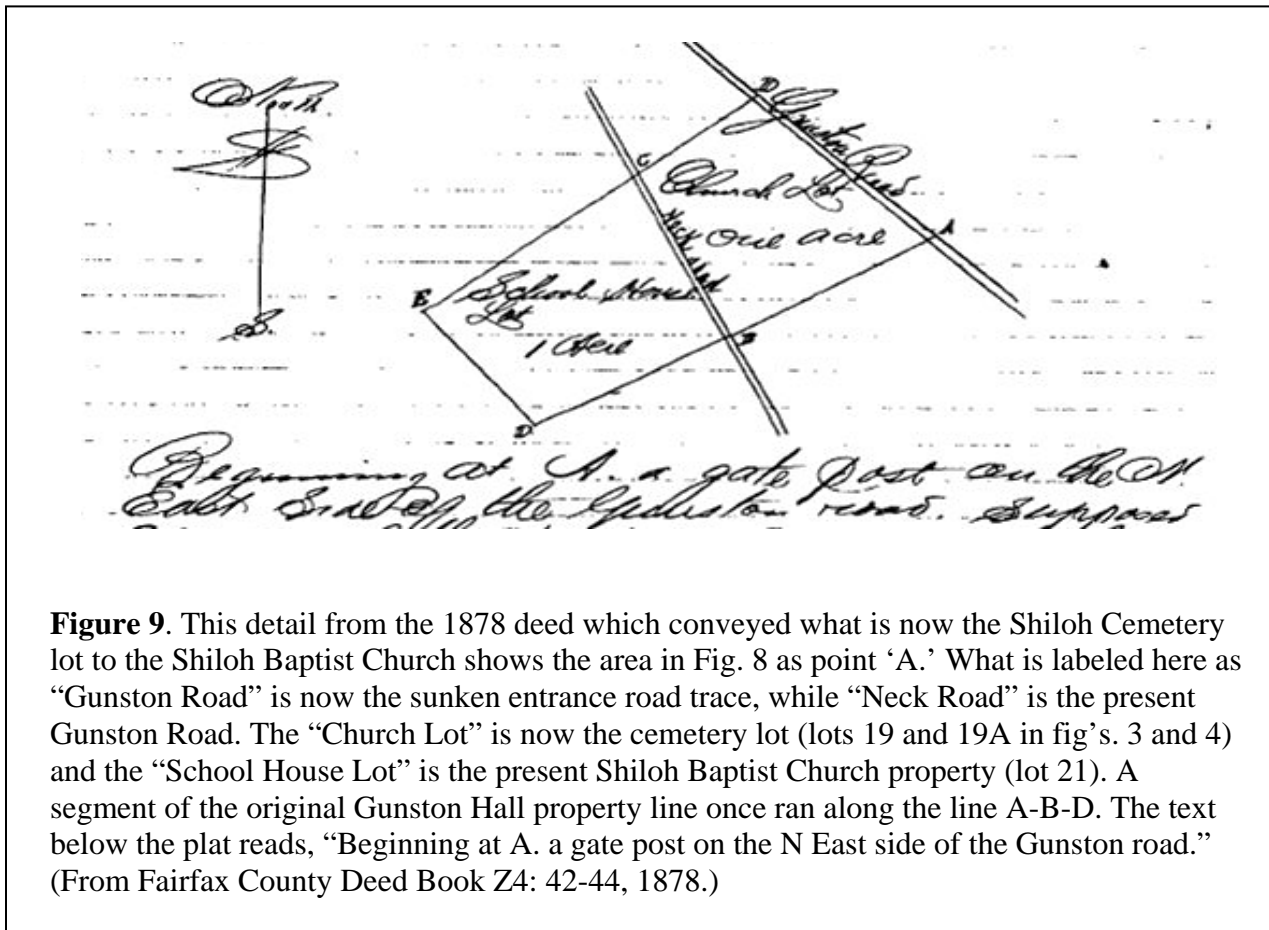 North
S.
D
Gunston Road
C
Church Lot
Neck Road
One acre
A
E
School House
Lot
B
1 Acre
D
Beginning at A. a gate post on the N.
East Side of the Gunston road. Suppose
Figure 9. This detail from the 1878 deed which conveyed what is now the Shiloh Cemetery
lot to the Shiloh Baptist Church shows the area in Fig. 8 as point ‘A.’ What is labeled here as
“Gunston Road” is now the sunken entrance road trace, while “Neck Road” is the present
Gunston Road. The “Church Lot” is now the cemetery lot (lots 19 and 19A in fig’s. 3 and 4)
and the “School House Lot” is the present Shiloh Baptist Church property (lot 21). A
segment of the original Gunston Hall property line once ran along the line A-B-D. The text
below the plat reads, “Beginning at A. a gate post on the N East side of the Gunston road.”
(From Fairfax County Deed Book Z4: 42-44, 1878.)